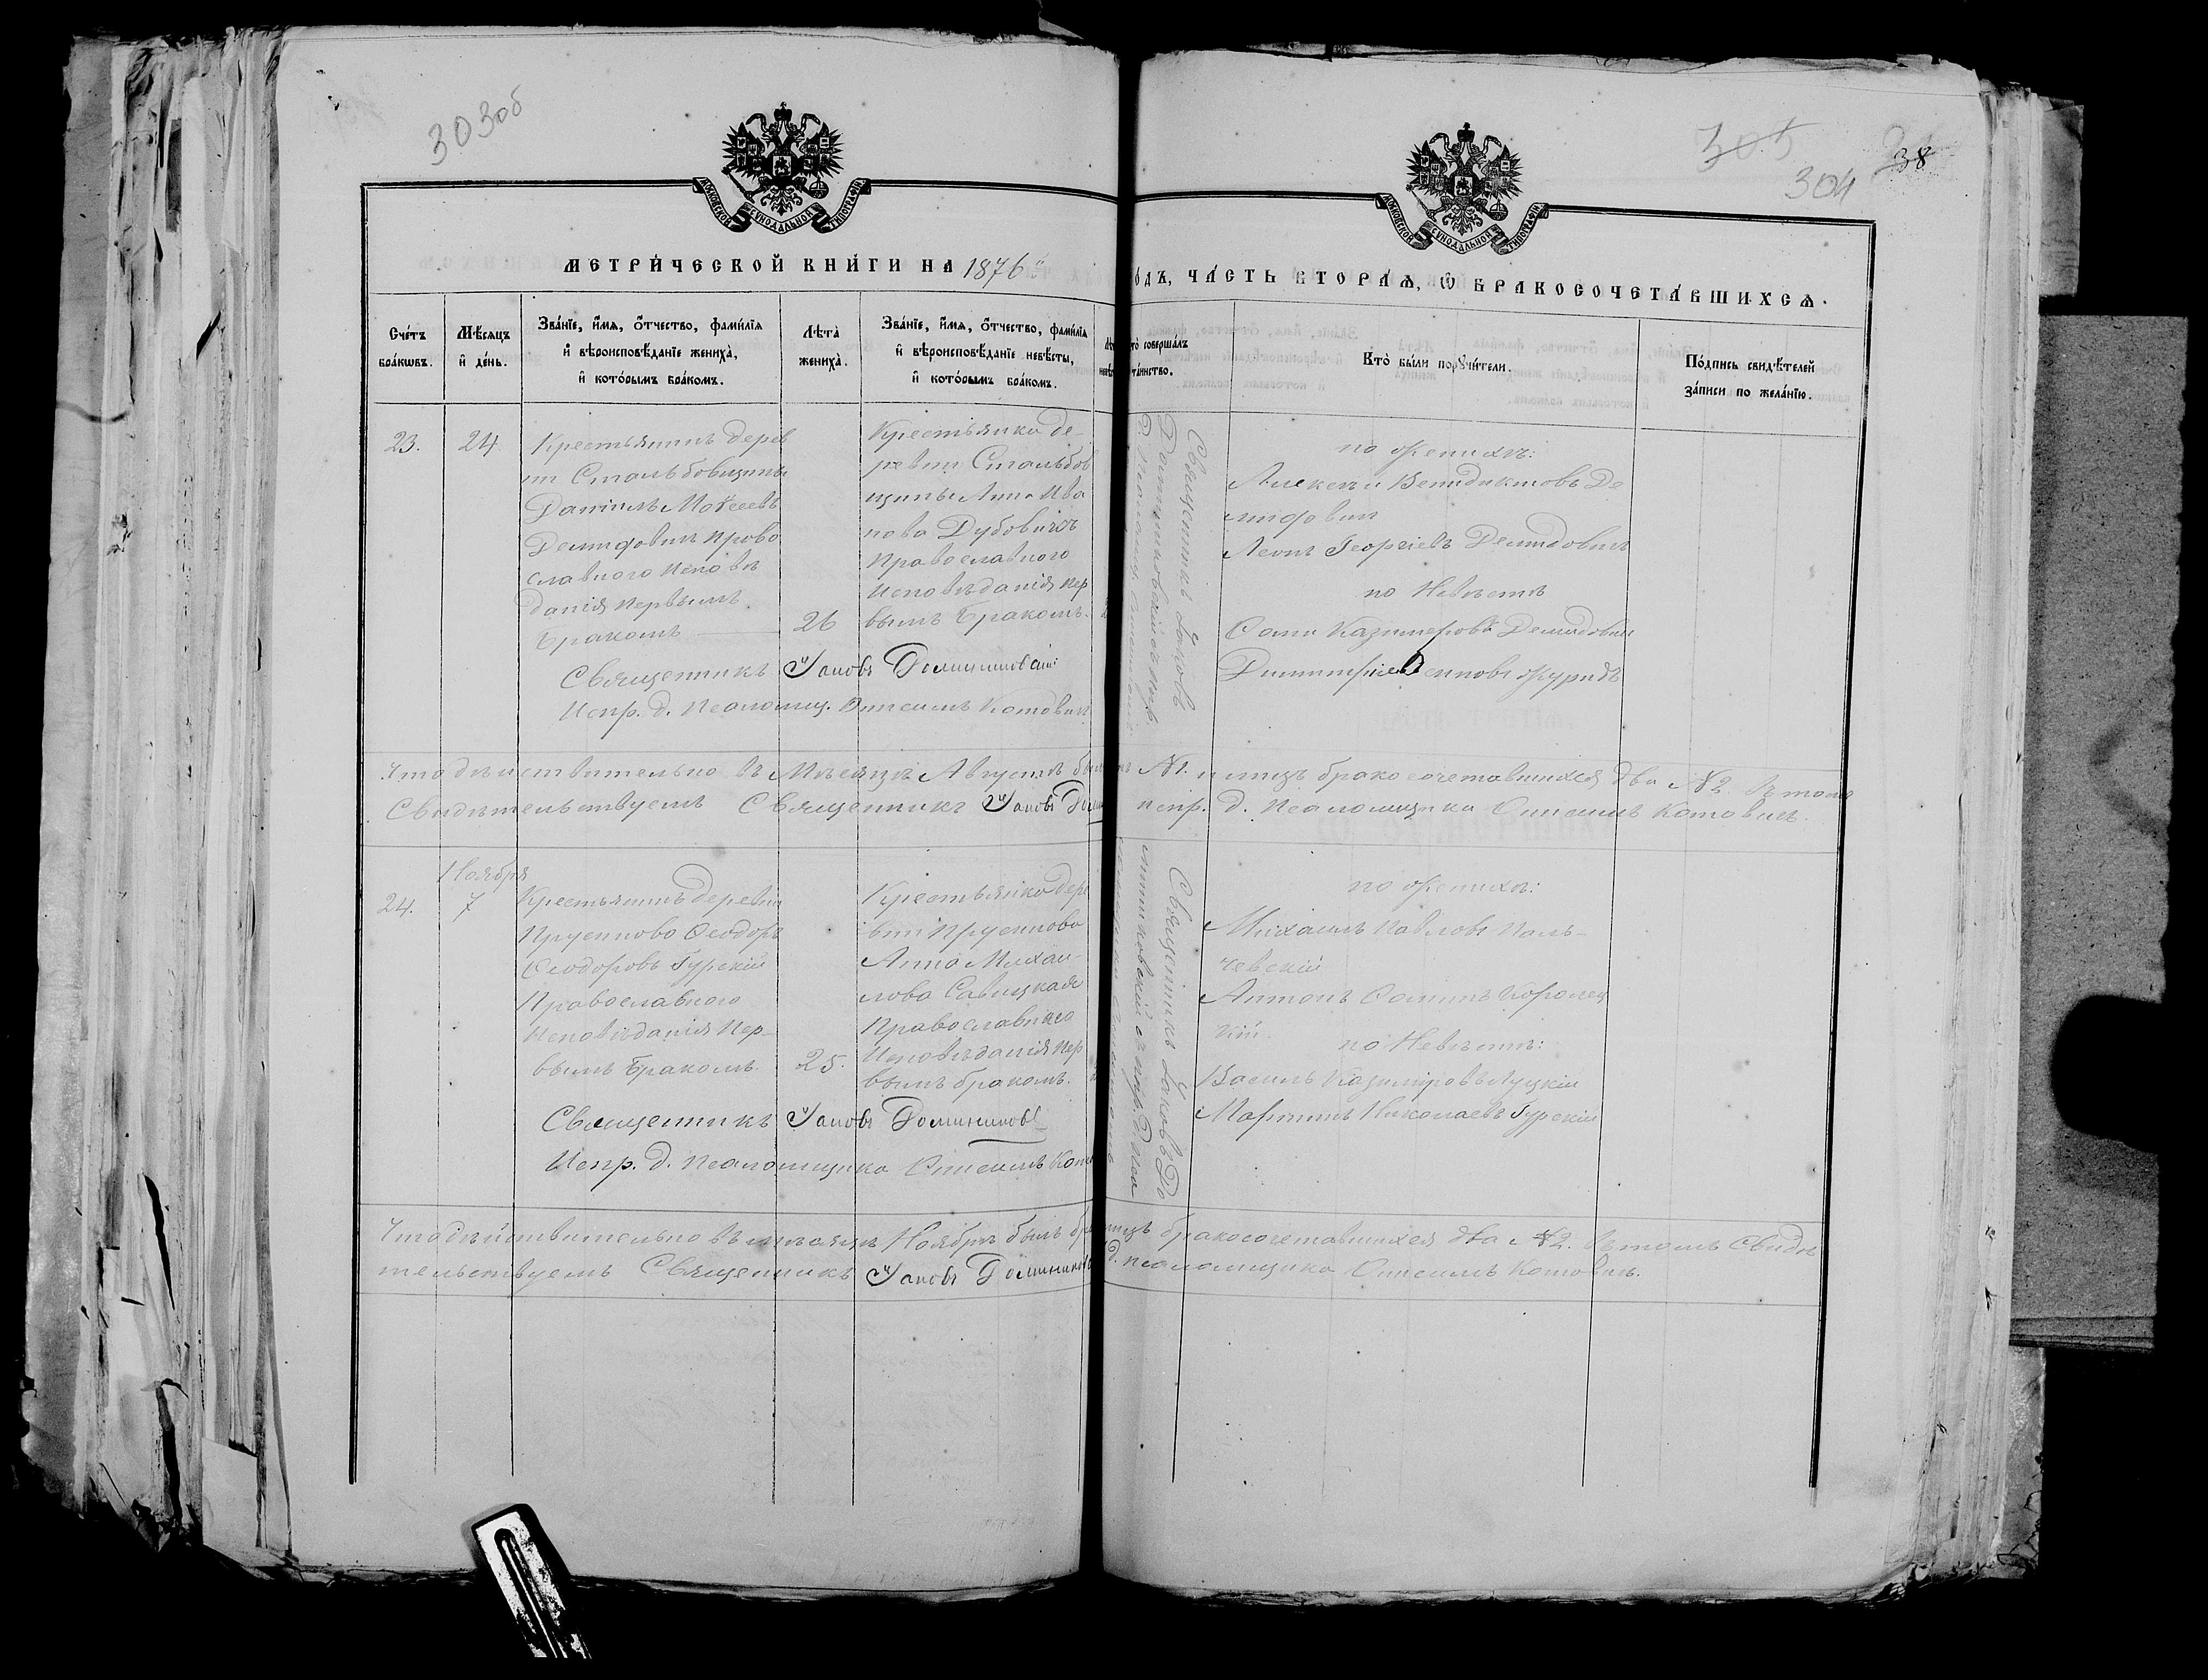 303об
305
304
38
МОСКОВСКОЙ СѴНОДАЛЬНОЙ ТИПОГРАФІИ
МОСКОВСКОЙ СѴНОДАЛЬНОЙ ТИПОГРАФІИ
МЕТРИ́ЧЕСКОЙ КНИ́ГИ НА 1876
о́дъ, ЧА́СТЬ ВТОРА́Я, Ѿ БРАКОСОЧЕТА́ВШИХСЯ.
Сче́тъ бра́кωвъ.
Мѣ́сяцъ и҆ де́нь.
Зва́нїе, и҆́мя, ѻ҆́тчество, фами́лїя и҆ вѣроисповѣ́данїе жениха̀, и҆ кото́рымъ бра́комъ.
Лѣ́та жениха̀.
Зва́нїе, и҆́мя, ѻ҆́тчество, фами́лїя и҆ вѣроисповѣ́данїе невѣ́сты, и҆ кото́рымъ бра́комъ.
то̀ соверша́лъ
та́инство.
Кто̀ бы́ли пору́чители.
По́дпись свидѣ́телей за́писи по жела́нїю.
23.
24
Крестьянинъ дерев
ни Стальбовщины
Даніилъ Моѵсеевъ
Демидовичъ Право
славнаго Исповѣ
данія Первымъ
Бракомъ
26
Крестьянка де-
ревни Стальбов
щины Анна Ива
нова Дубовичъ
Православного
Исповѣданія Пер
вымъ Бракомъ.
Священникъ Іаковъ
по женихѣ:
Алексѣй Венидиктовъ Де
мидовичъ
Леонъ Георгіевъ Демидовичъ
по Невѣстѣ
Сами Казимеровъ Демидович
Димитрій Осиповъ Журидъ
Священникъ Іаковъ
Испр. д. Псаломщ. Онисимъ Котовичъ
Что дѣйствительно въ Мѣсяцѣ Августѣ былъ № 1. и лицъ бракосочетавшихся два № 2. въ томъ
Свидѣтельствуемъ Священникъ Іаковъ испр. д. Псаломщика Онисимъ Котовичъ.
Ноября
24.
7
Крестьянинъ деревни
Прусиново Ѳеодоръ
Ѳеодоровъ Гурскій
Православного
Исповѣданія Пер-
вымъ Бракомъ.
25.
Крестьянка дере
вни Прусиново
Анна Михаи-
лова Савицкая
Православного
Исповѣданія Пер
вымъ бракомъ.
Священникъ Іаковъ До
по женихѣ:
Михаилъ Павловъ Паль-
чевскій
Антонъ Королец
кій
по Невѣстѣ:
Василь Казиміровъ Луцкій
Мартинъ Николаевъ Гурскій
Священникъ Іаковъ
Испр. д. Псаломщика Онисимъ
Что дѣйствительно въ мѣсяцѣ Ноябрѣ былъ бра лицъ бракосочетавшихся два № 2. въ томъ Свидѣ
тельствуемъ Священникъ Іаковъ д. псаломщика Онисимъ Котовичъ.